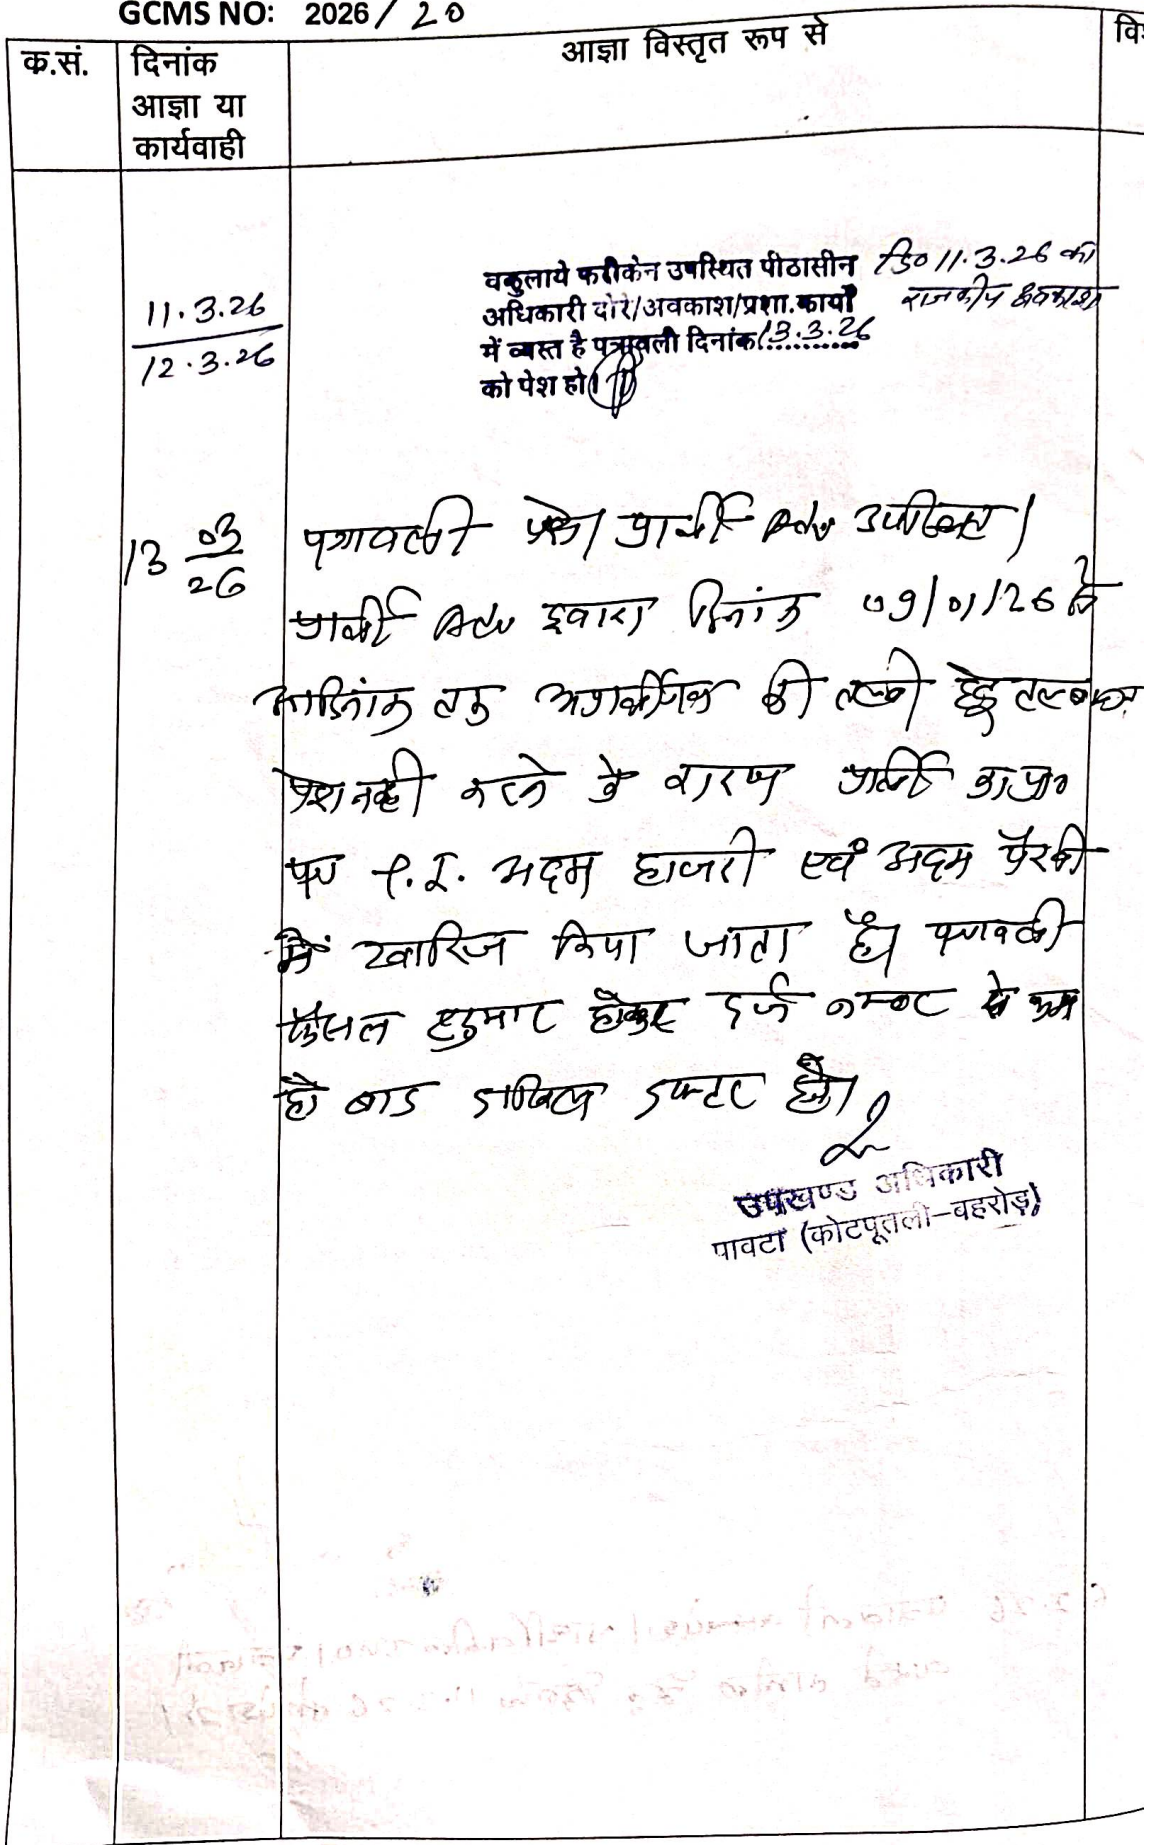 GCMS NO: 2026/20
क.सं. दिनांक आज्ञा या कार्यवाही आज्ञा विस्तृत रूप से वि
11.3.26
12.3.26
वकुलाये फरीकेन उपस्थित पीठासीन
अधिकारी दौरे/अवकाश/प्रशा.कार्यों
में व्यस्त है पत्रावली दिनांक 13.3.26
को पेश हो।
दि० 11.3.26 को
राजकीय अवकाश
13 03/26
पत्रावली पेश। प्रार्थी उपस्थित।
प्रार्थी द्वारा दिनांक 09/01/26 से
आदिनांक तक अप्रार्थीगण की तलबी हेतु तलबाना
पेश नही करने के कारण प्रार्थी का प्रा०
पत्र P.I. अदम हाजरी एवं अदम पैरवी
में खारिज किया जाता है। पत्रावली
फैसल शुमार होकर दर्ज नम्बर से कम
हो बाद दाखिल दफ्टर हो।
उपखण्ड अधिकारी
पावटा (कोटपूतली-बहरोड़)